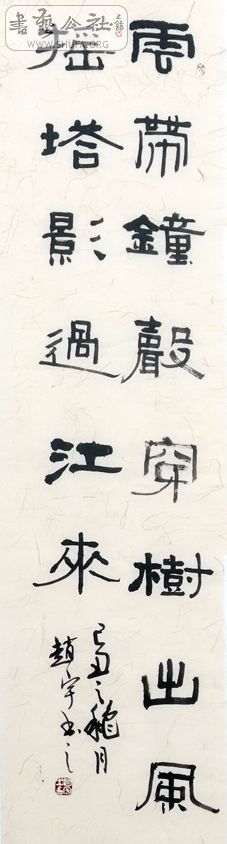 雲帶鐘聲穿樹出風
搖塔影過江來
己丑之秋月
趙宇書之
書藝公社
WWW.SHUFA.ORG